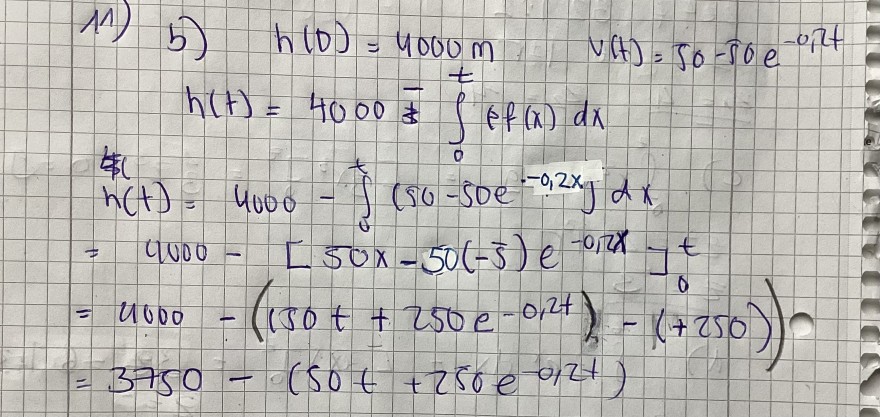 11) b) h(0) = 4000m v(t) = 50-50e^-0,2t
h(t) = 4000 - ∫₀ᵗ f(x) dx
h(t) = 4000 - ∫₀ᵗ (50-50e^-0,2x) dx
= 4000 - [50x-50(-5)e^-0,2x]₀ᵗ
= 4000 - ((50t + 250e^-0,2t) - (+250))
= 3750 - (50t +250e^-0,2t)